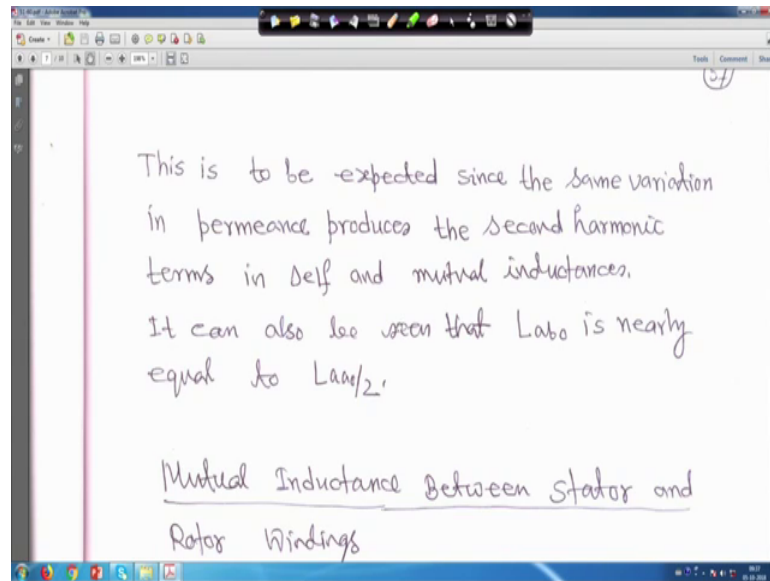 File Edit View Window Help
Create
7
Tools Comment
37
This is to be expected since the same variation
in permeance produces the second harmonic
terms in self and mutual inductances.
It can also be seen that Labo is nearly
equal to Laao/2.
Mutual Inductance Between Stator and
Rotor Windings